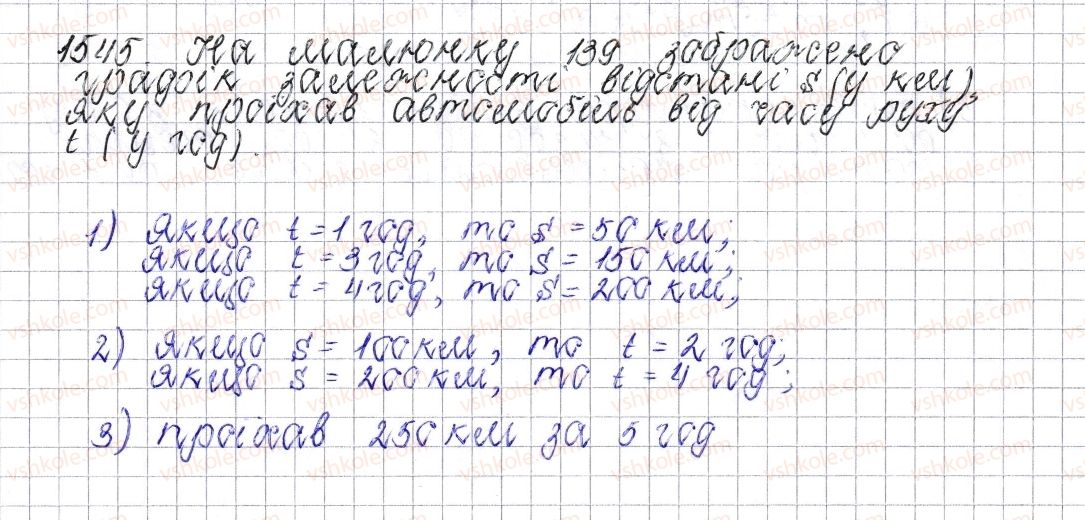 1545. На малюнку 139 зображено
графік залежності відстані s (у км),
яку проїхав автомобіль від часу руху
t (у год).
1) Якщо t = 1 год, то s = 50 км;
якщо t = 3 год, то s = 150 км;
якщо t = 4 год, то s = 200 км;
2) якщо s = 100 км, то t = 2 год;
якщо s = 200 км, то t = 4 год;
3) проїхав 250 км за 5 год